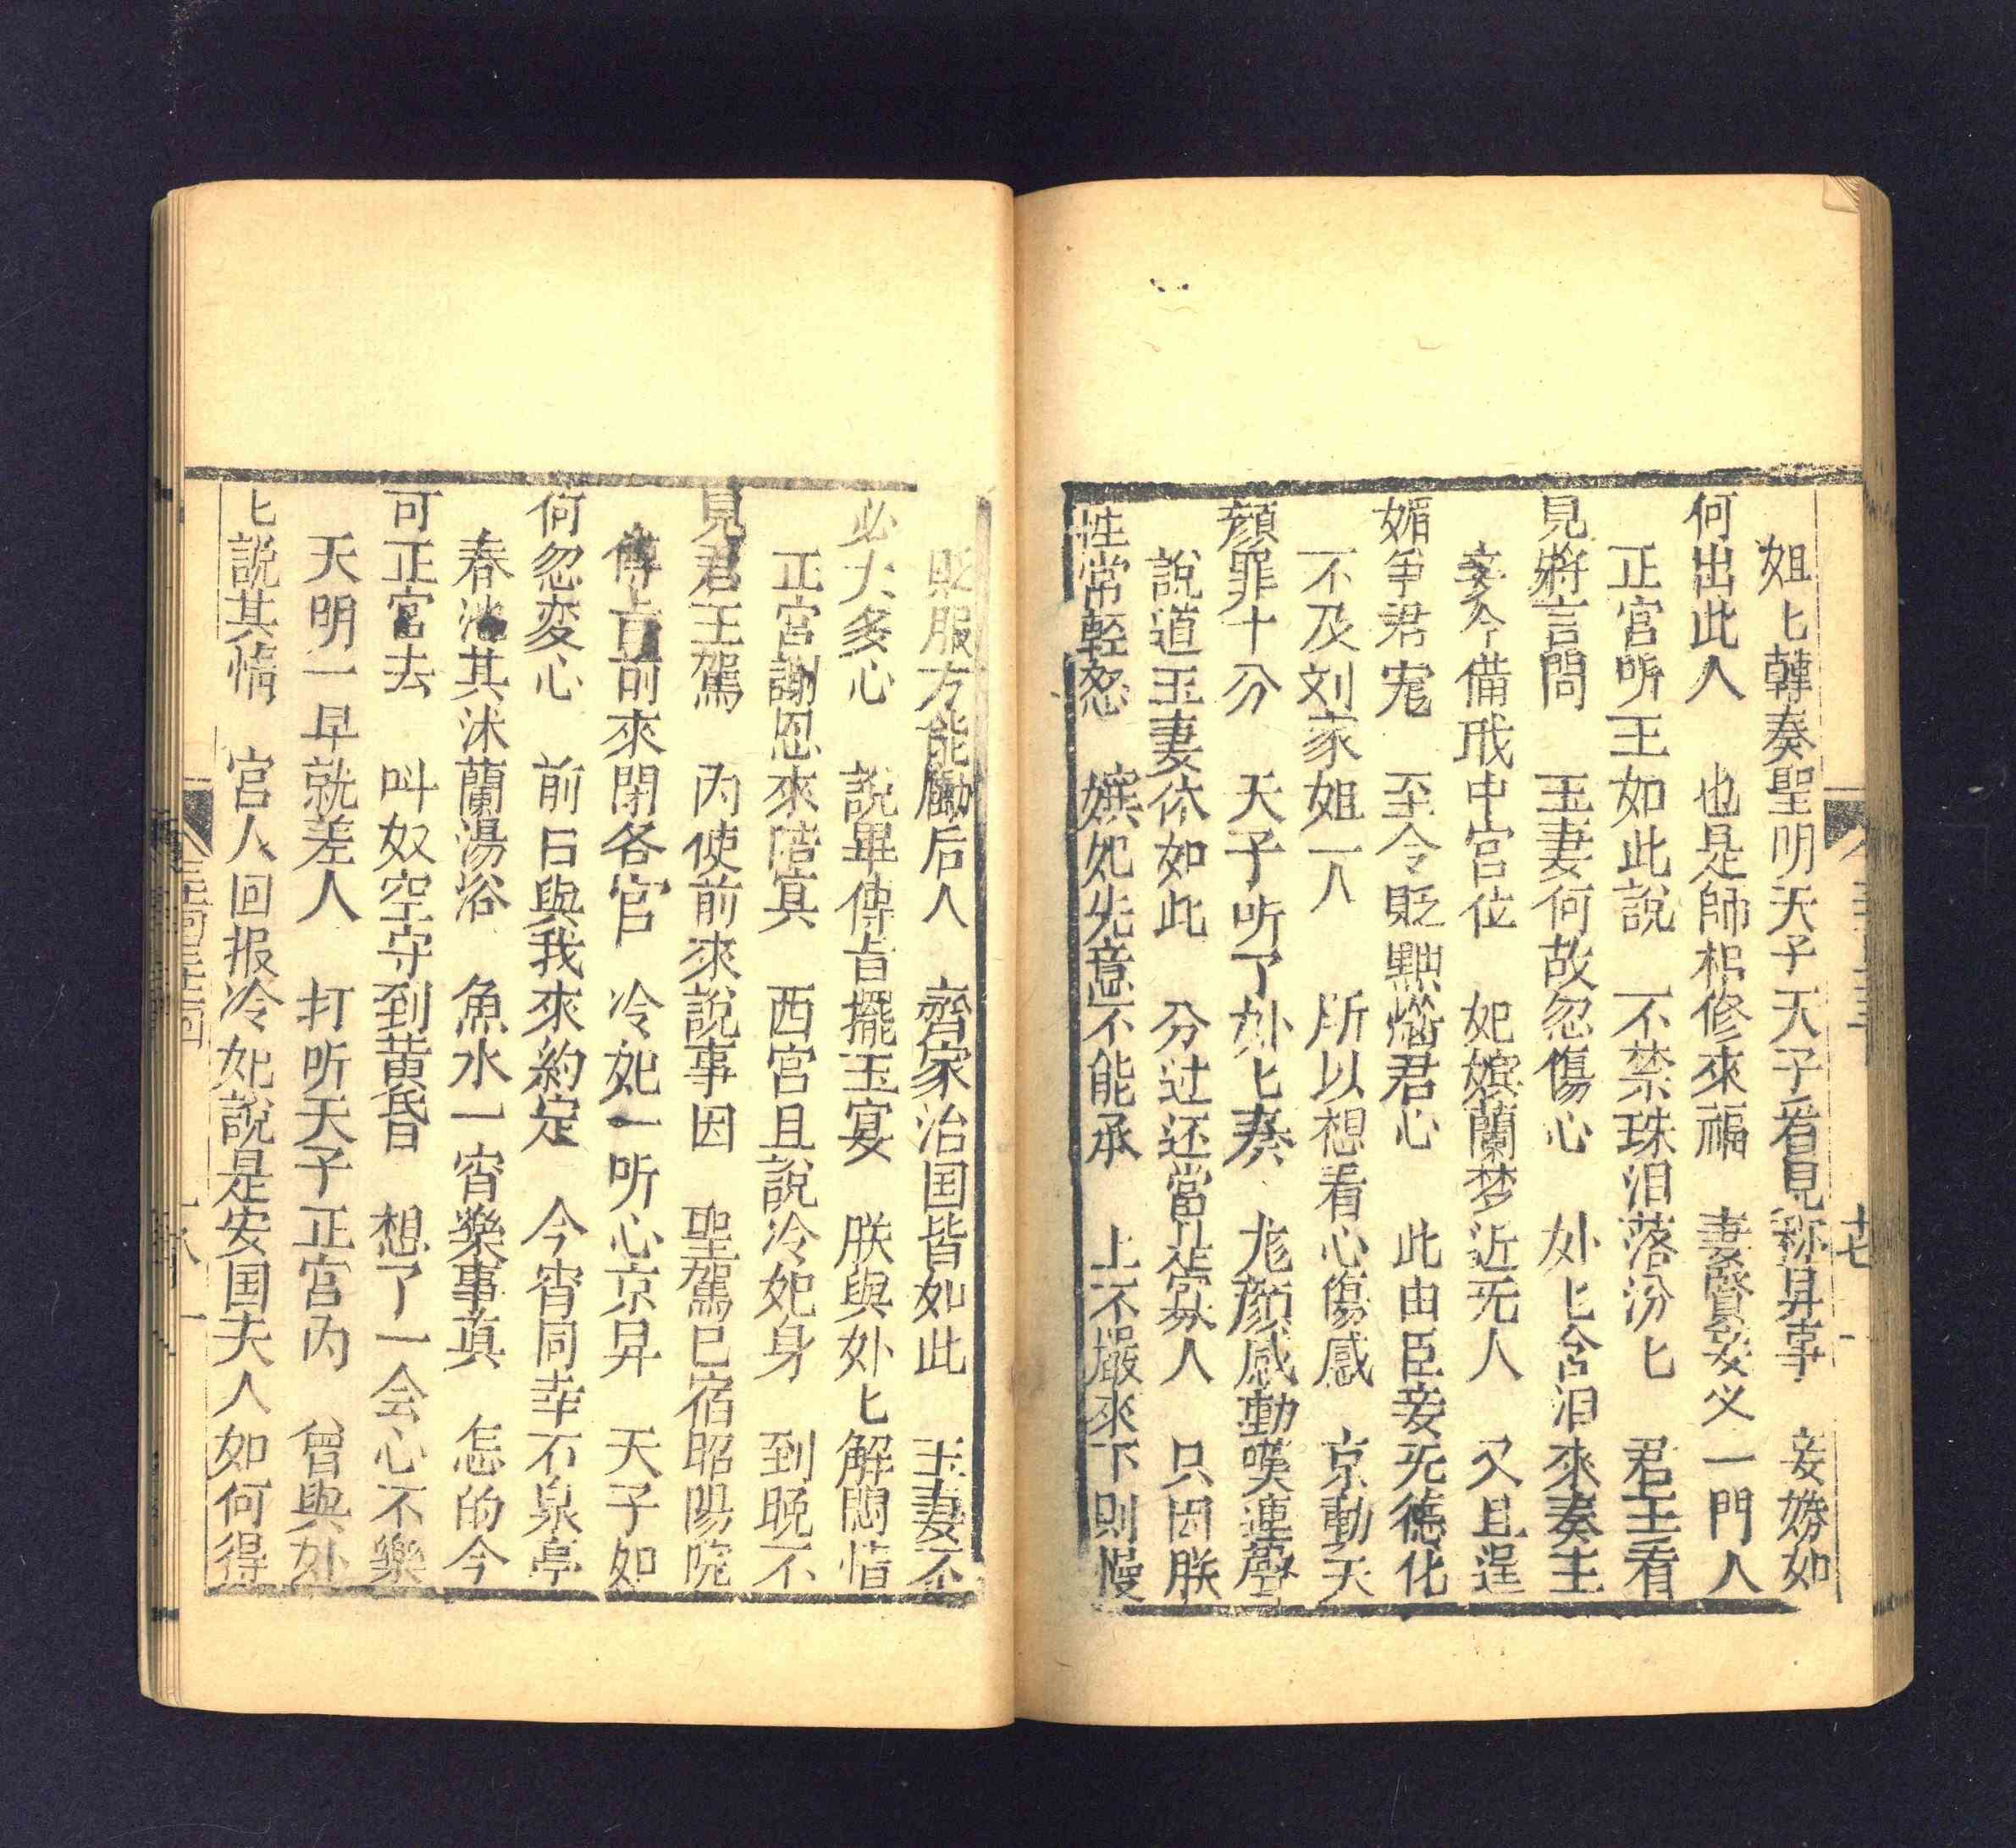 姐匕轉奏聖明天子天子看見称昇事　妾嫂如
何出此人　也是師棺修來福　妻賢妾义一門人
正宫听王如此說　不禁珠泪落汾匕　君王看
見將言問　玉妻何故忽傷心　外匕含泪來奏主
妾今備戒中宫位　妃嬪蘭梦近死人　又且逞
媚争君宠　至令貶黜惱君心　此由臣妾死德化
不及刘家姐一人　所以想看心傷感　京動天
顔罪十分　天子听了外匕奏　尨顔感動嘆連聲
說道玉妻休如此　分过还當寡人　只因朕
性常輕怒　嬪妃先意不能承　上不嚴來下則慢
貶服方能勵后人　齊家治国皆如此　玉妻不
必大多心　說畢傳旨擺玉宴　朕與外匕解悶情
正宫謝恩來陪宴　西宫且說冷妃身　到晚不
見君王駕　内使前來說事因　聖駕已宿昭陽院
傳旨前來閉各官　冷妃一听心京昇　天子如
何忽変心　前日與我來約定　今宵同幸不泉亭
春池其沐蘭湯浴　魚水一宵樂事真　怎的今
可正宫去　叫奴空守到黄昏　想了一会心不樂
天明一早就差人　打听天子正宫内　曾與外
匕説其情　宫人回报冷妃說是安国夫人如何得